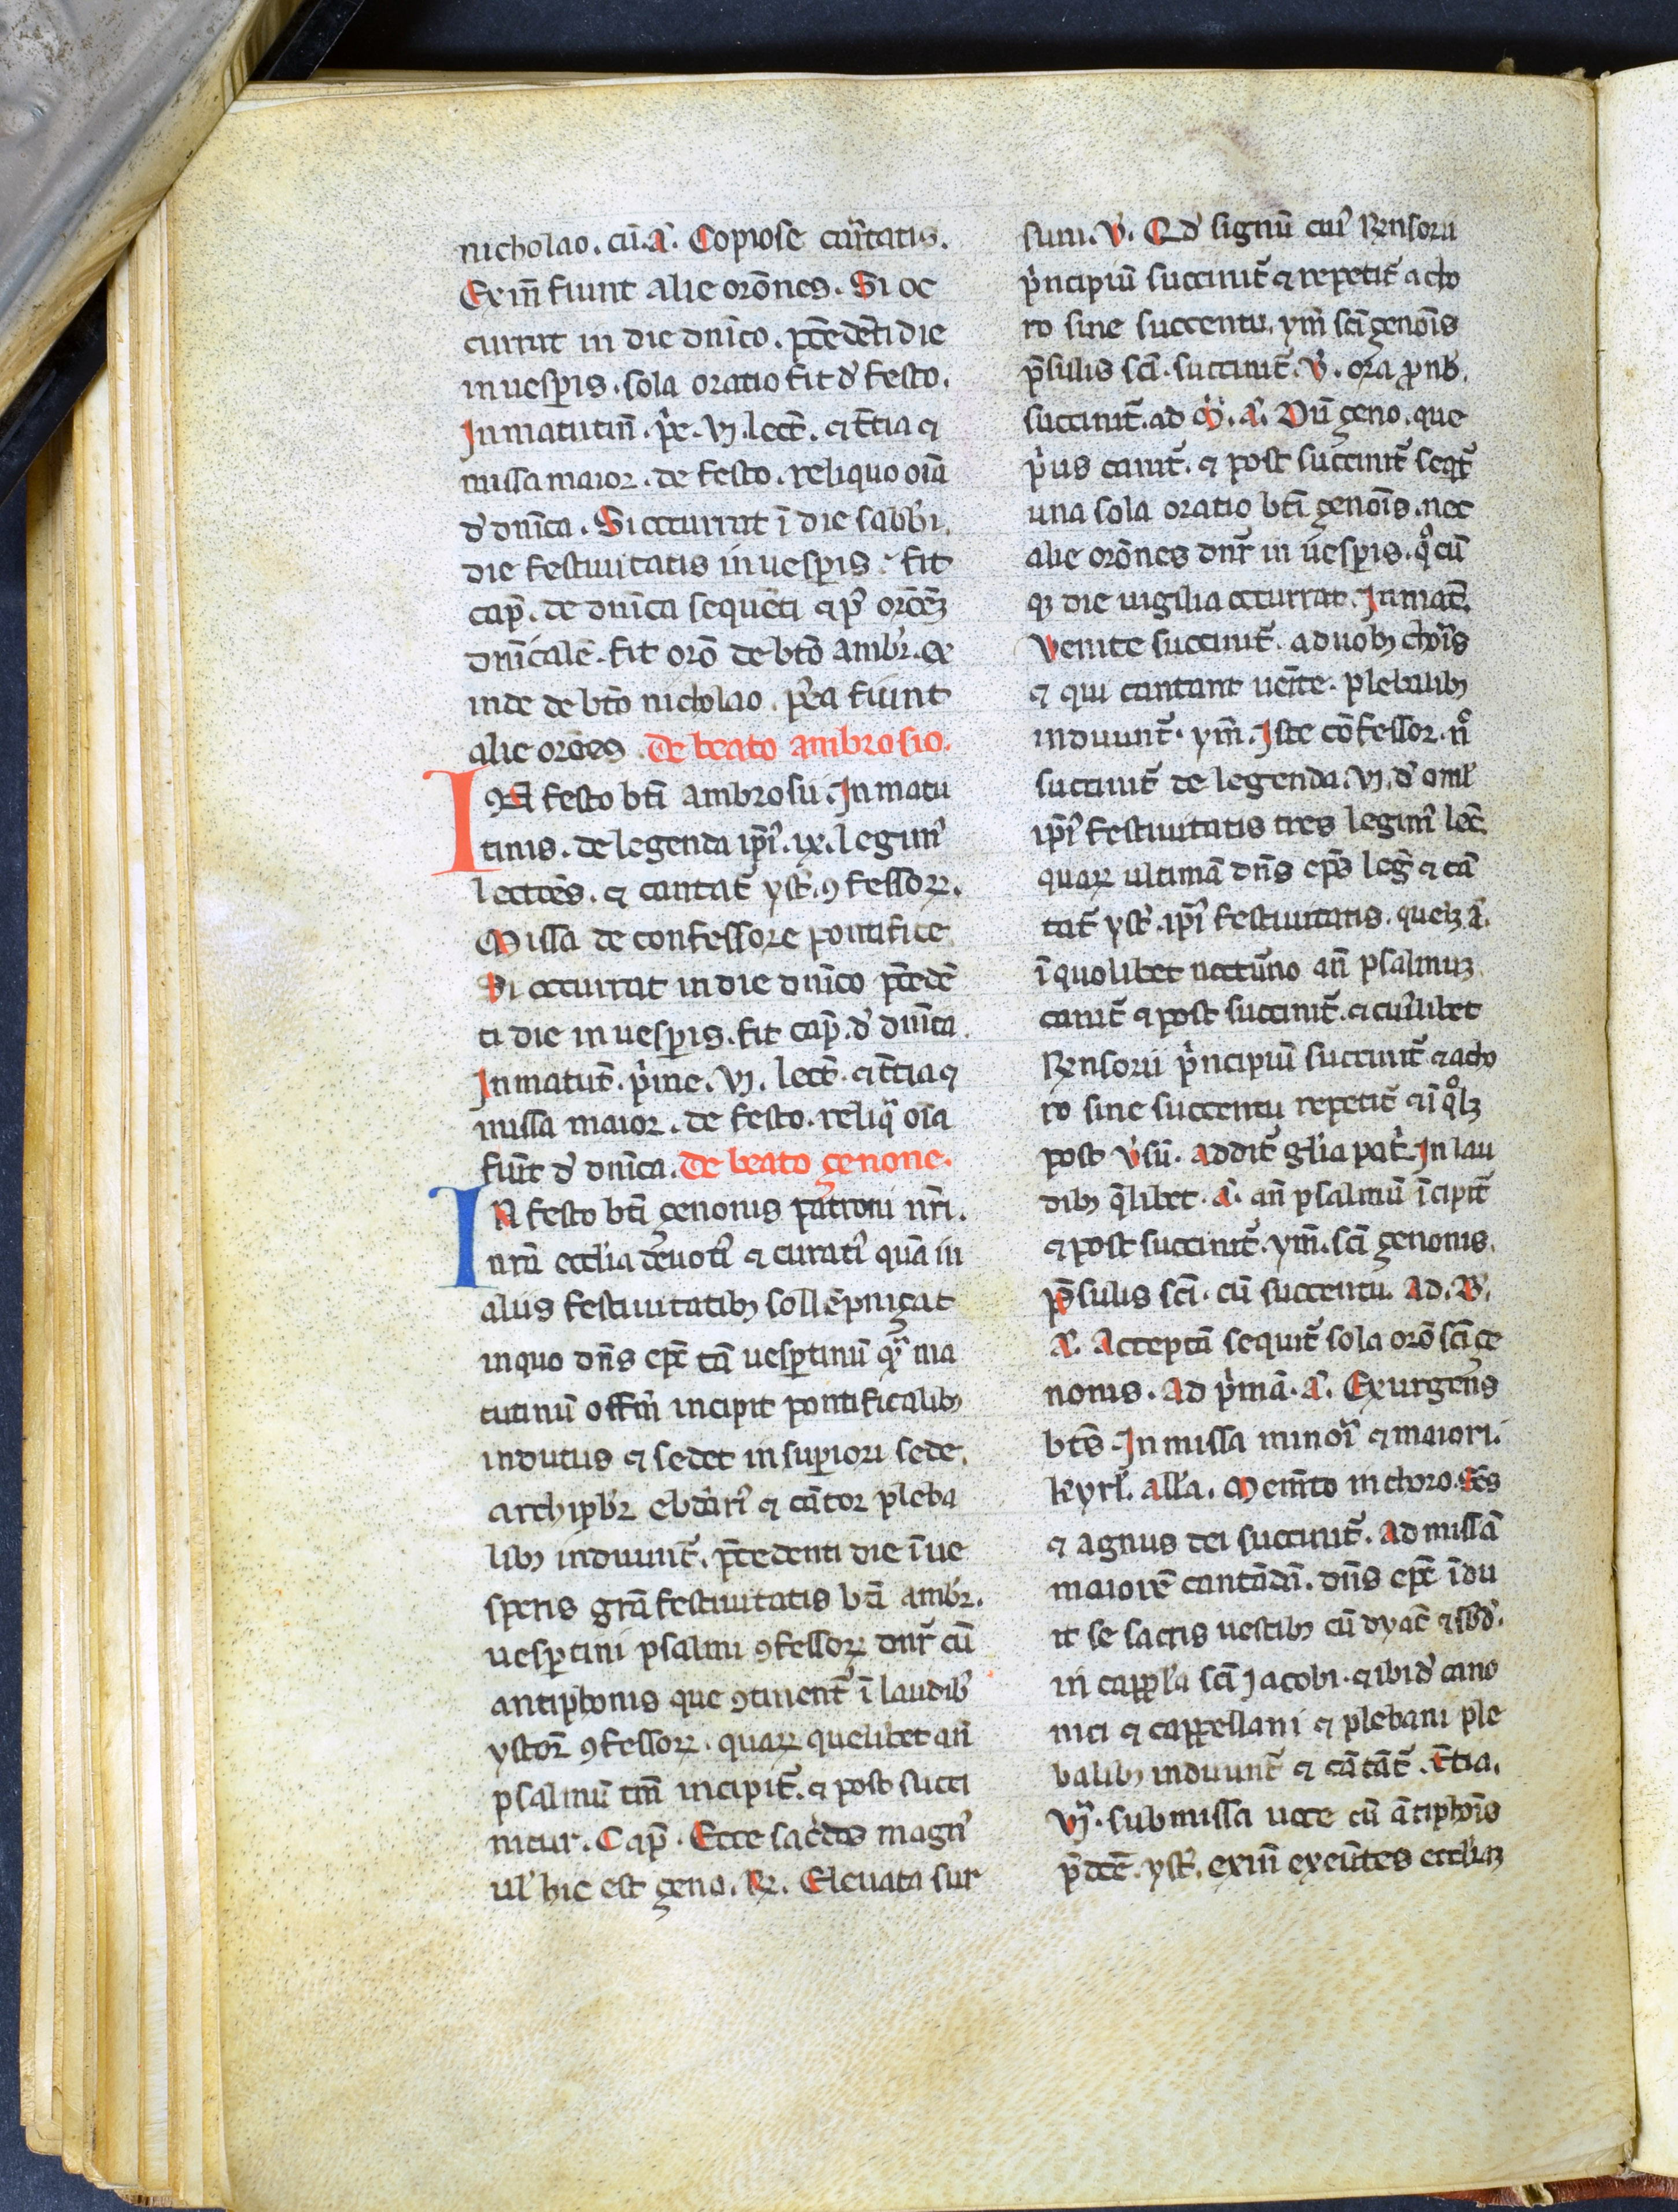 nicholao. cū. A᷒. Copiose cāritatis.
Exin̄ fiunt alie orōnes. Si oc
currit in die dn̄ico. p̄cedēti die
in uesp̄is. sola oratio fit d̓ festo.
In matutin̄. p̓e. vj. lect̄. ⁊ t̄cia ⁊
missa maior. de festo. reliquo oīa
d̓ dn̄ica. Si occurrit ī die sabb̓i.
die festiuitatis in uesp̄is. fit
cap̄. de dn̄ica sequēti ⁊ p̓ orōēꝫ
dn̄icalē. fit orō de bt̄o ambr̓. ex
inde de bt̄o nicholao. p̓ea fiunt
alie orōēs. De beato ambrosio.
In festo bt̄i ambrosii. In matu
tinis. de legenda ip̄i᷒. ix. legunt᷒
lectōēs. ⁊ cantat᷒ yst᷒. ꝯfessoꝝ.
Missa de confessore pontifice.
Si occurrat in die dn̄ico p̄cedē
ti die in uesp̄is. fit cap̄. d̓ dn̄ica.
In matut̄. p̓me. vj. lect̄. ⁊ t̄cia ⁊
missa maior. de festo. reliq̄ oīa
fiūt d̓ dn̄ica. De beato çenone.
In festo bt̄i çenonis patroni nr̄i.
nr̄a eccl̓ia deuoti᷒ ⁊ curati᷒ quā in
aliis festiuitatibꝫ sollēpniçat
in quo dn̄s ep̄c tā uesp̄tinū qͣ᷒ ma
tutinū offm̄ incipit pontificalibꝫ
indutus ⁊ sedet in sup̄iori sede.
archip̄br̓ ebdāri᷒ ⁊ cātor pleba
libꝫ induunt᷒. p̄cedenti die ī ue
speris grā festiuitatis bt̄i ambr̓.
uesp̄tini psalmi ꝯfessoꝝ dn̄r cū
antiphonis que ꝯtinent᷒ ī laudib᷒
ystor̄ ꝯfessoꝝ. quaꝝ quelibet an̄
psalmū tm̄ incipit᷒. ⁊ post succi
nitur. Cap̄. Ecce sac̓dos magn᷒
ul᷒ hic est çeno. ℞. Eleuata sur
sum. ℣. Qd̓ signū cui᷒ ℞nsorii
p̓ncipiū succinit᷒ ⁊ repetit᷒ a cho
ro sine succentu. ym̄ sc̄i çenōis
p̄sulis sc̄i. succinit᷒. ℣. ora p̱ nb̓.
succinit᷒. ad M᷒. A᷒. Dū çeno. que
p̓us canit᷒. ⁊ post succinit᷒ seqt᷒
una sola oratio bt̄i çenōis. nec
alie orōnes dn̄r in uesp̄is. qͦcū
qꝫ die uigilia occurrat. In mat̄.
Venite succinit᷒. a duobꝫ chōis
⁊ qui cantant uēite. plebalibꝫ
induunt᷒. ym̄. Iste cōfessor. nͦ
succinit᷒ de legenda. vj. d̓ oml᷒
ip̄i᷒ festiuitatis tres legunt᷒ lec̄.
quaꝝ ultimā dn̄s ep̄s leg̓ ⁊ cā
tat᷒ yst᷒. ip̄i᷒ festiuitatis. quelꝫ a᷒.
ī quolibet noctūno an̄ psalmuꝫ
canit᷒ ⁊ post succinit᷒. ⁊ cui᷒libet
℞nsorii p̓ncipiū succinit᷒ ⁊ a cho
ro sine succentu repetit᷒ ⁊ ī qͦlꝫ
post v̓sū. addit᷒ gl̓ia pat̓. In lau
dibꝫ q̄libet. A᷒. an̄ psalmū īcipit᷒
⁊ post succinit᷒. ym̄. sc̄i çenonis.
p̄sulis sc̄i. cū succentu. Ad. B᷒.
A᷒. Acceptā sequit᷒ sola orō sc̄i çe
nonis. Ad p̓mā. A᷒. Exurgens
bt̄s. In missa minori ⁊ maiori.
kyrl᷒. all᷒a. Memēto in choro. Sc̄s
⁊ agnus dei succinit᷒. Ad missā
maiorē cantādā. dn̄s ep̄c īdu
it se sacris uestibꝫ cū dyac̄ ⁊ sb̓d̓.
in cappl᷒a sc̄i Jacobi. ⁊ ibid̓ cano
nici ⁊ cappellani ⁊ plebani ple
balibꝫ induunt᷒ ⁊ cātāt᷒. t̄cia.
vj. submissa uoce cū ātiphōis
p̄dcē. yst᷒. exin̄ exeūtes eccl᷒iaꝫ